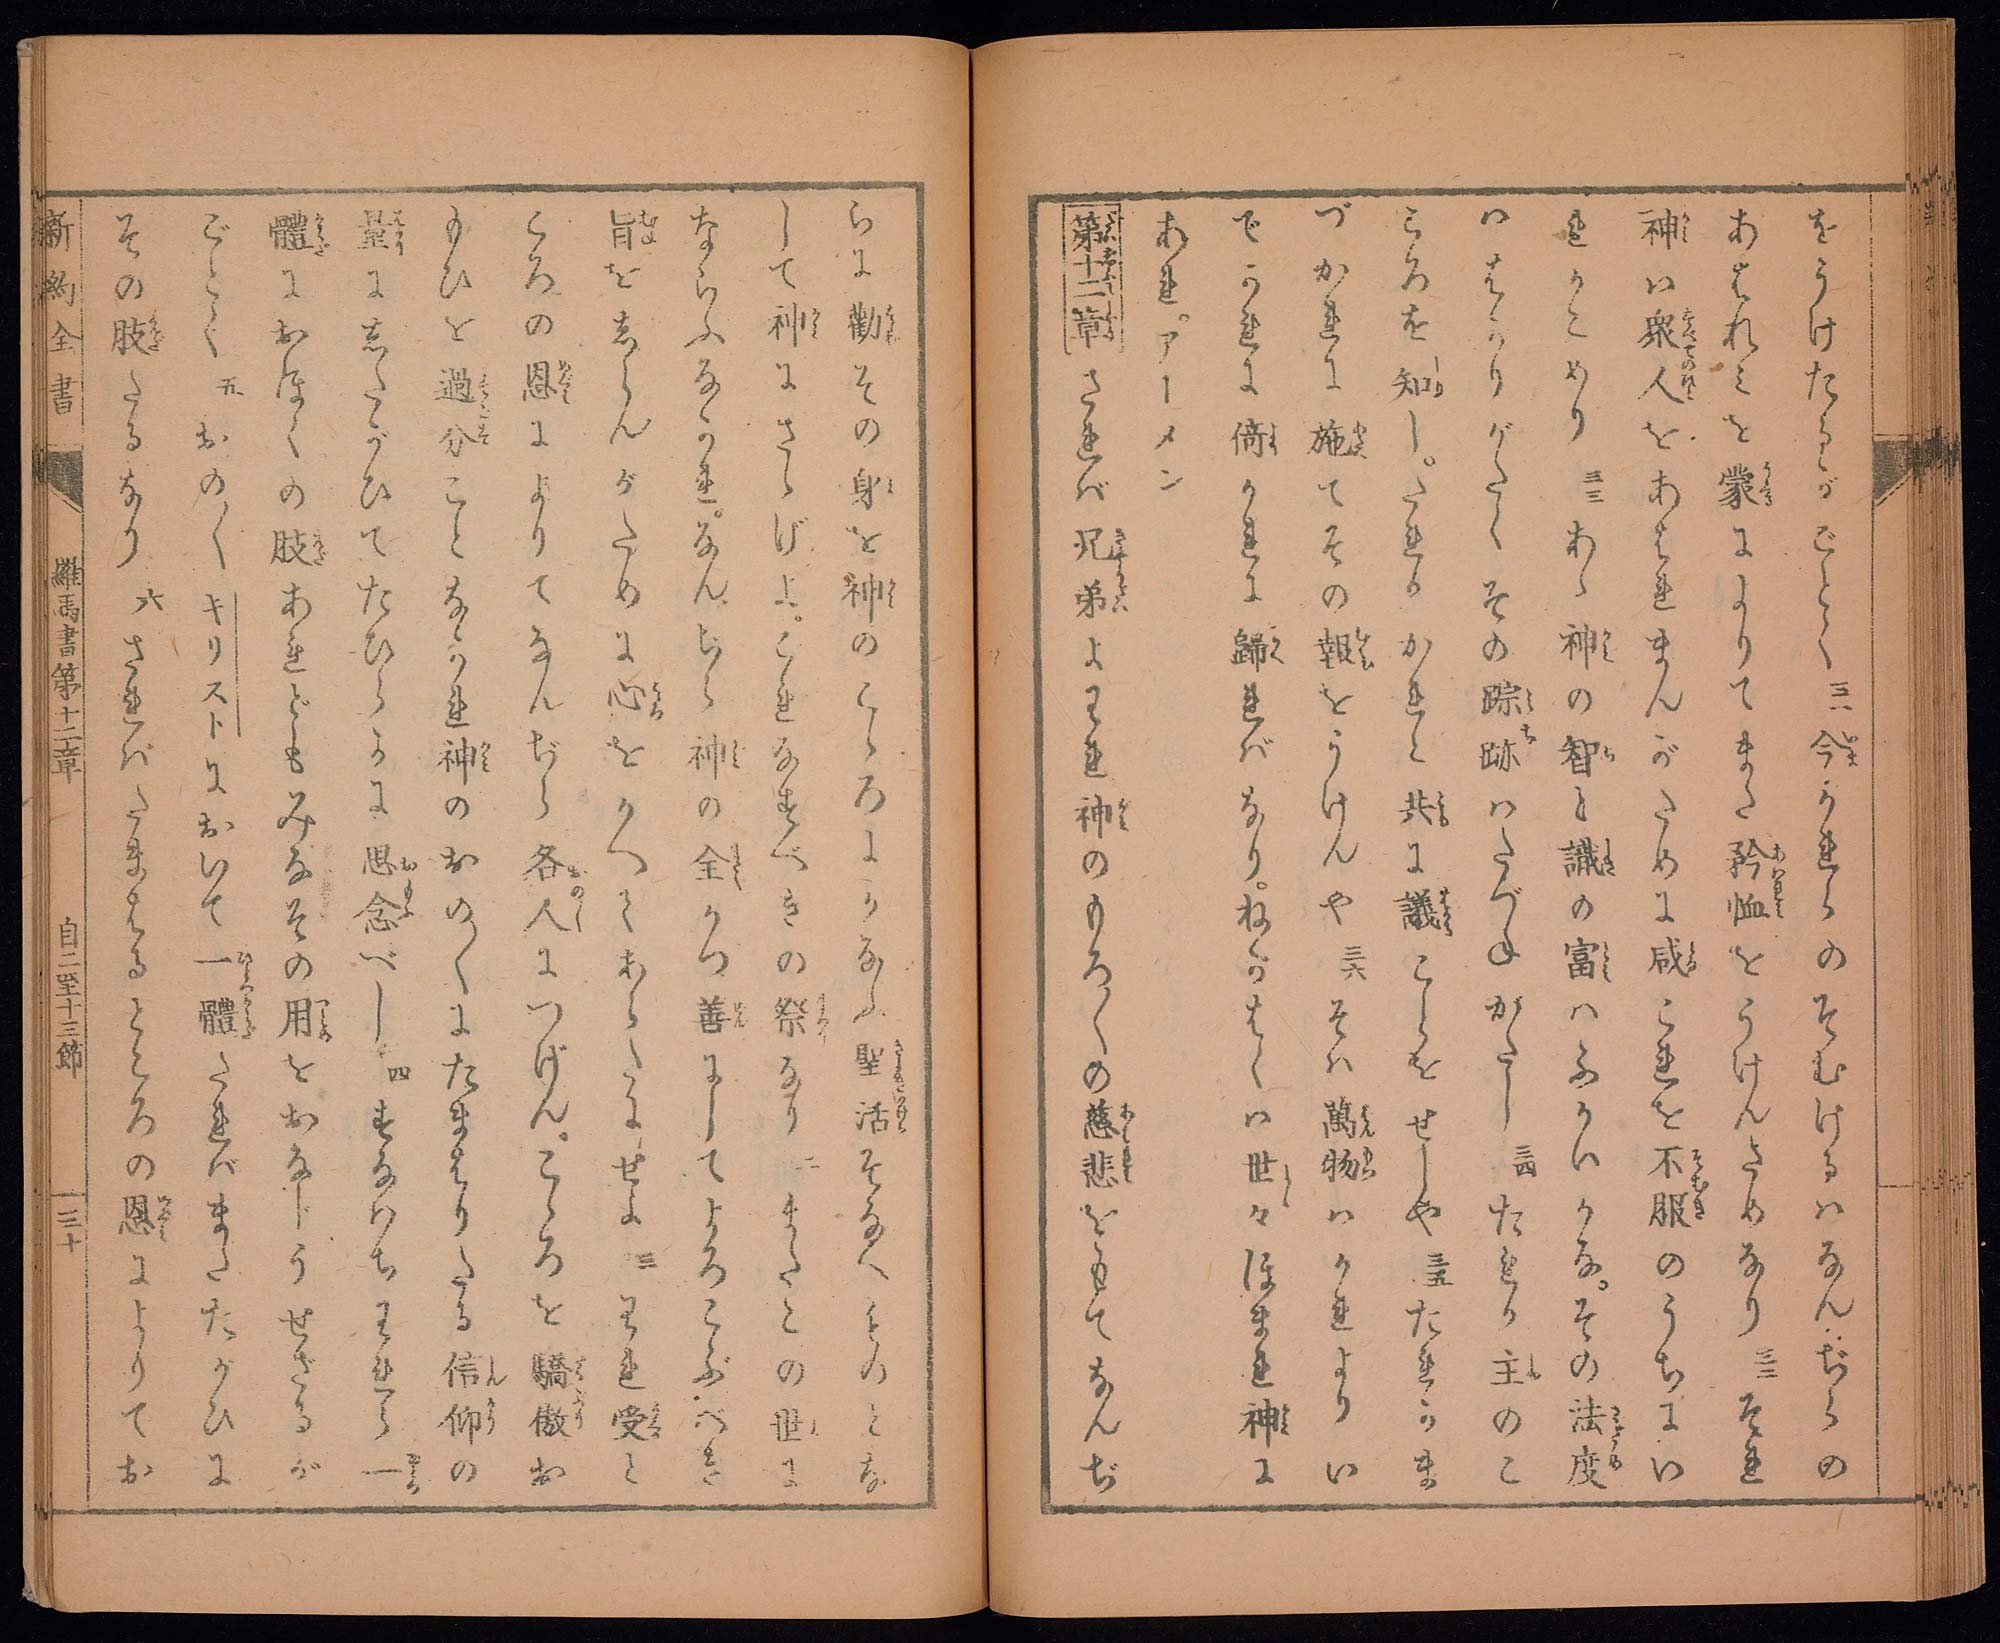 をうけたるがごとく 三一 今かれらのそむけるハなんぢらの
あはれミを蒙によりてまた矜恤をうけんためなり 三二 それ
神ハ衆人をあはれまんがために咸これを不服のうちにい
れかこめり 三三 あゝ神の智と識の富ハふかいかな。その法度
ハはかりがたくその踪跡ハたづねがたし 三四 たれか主のこ
ころを知し。たれかかれと共に議ことをせしや 三五 たれかま
づかれに施てその報をうけんや 三六 そハ萬物ハかれよりい
でかれに倚かれに歸ればなり。ねがはくハ世々ほまれ神に
あれ。アーメン
第十二章 されバ兄弟よわれ神のもろ〳〵の慈悲をもてなんぢ
らに勸その身を神のこゝろにかなふ聖活そなへものとな
して神にさゝげよ。これなすべきの祭なり 二 またこの世に
ならふなかれ。なんぢら神の全かつ善にしてよろこぶべき
旨をしらんがために心をかへてあらたにせよ 三 われ受と
ころの恩によりてなんぢら各人につげん。こゝろを驕傲お
もひを過分ことなかれ神のおの〳〵にたまはりたる信仰の
量にしたがひてたひらかに思念べし 四 すなはちわれら一
體におほくの肢あれどもみなその用をおなじうせざるが
ごとく 五 おの〳〵キリストにおいて一體たれバまたたがひに
その肢たるなり 六 されバたまはるところの恩によりてお
新約全書 羅馬書第十二章 自二至十三節 一三十